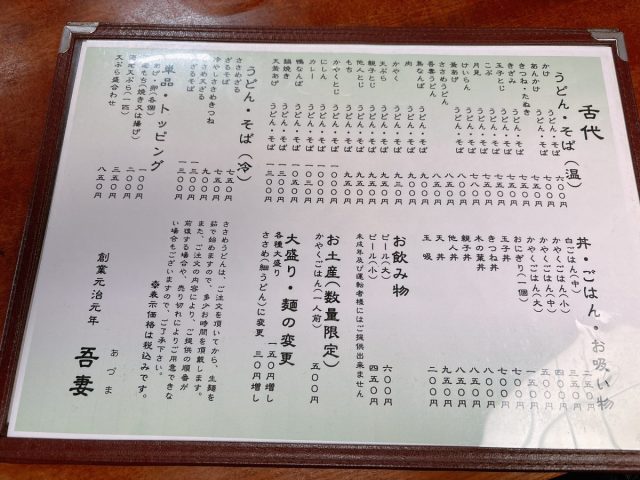 舌代
うどん・そば（温）
かけ うどん・そば 六〇〇円
あんかけ うどん・そば
きつね・たぬき うどん・そば
きざみ うどん・そば
玉子とじ うどん・そば
こぶ うどん・そば
月見 うどん・そば
けいらん うどん・そば
釜あげ うどん・そば
ささめうどん 八五〇円
吾妻うどん
鳥なんば うどん・そば
肉 うどん・そば
かやく うどん・そば
天ぷら うどん・そば
親子とじ うどん・そば 九五〇円
他人とじ うどん・そば 九五〇円
もち うどん・そば
かやくとじ うどん・そば
にしん うどん・そば
カレー うどん・そば
鴨なんば うどん・そば
鍋焼き うどん・そば
天釜あげ うどん・そば 一三〇〇円
うどん・そば（冷）
ささめざる 七五〇円
ざるそば 七五〇円
冷やしささめきつね 九〇〇円
ささめ天ざる 一三〇〇円
天ざるそば 一三〇〇円
単品・トッピング
あげ・卵（各個） 一〇〇円
もち（焼き又は揚げ） 二〇〇円
天ぷら（一匹） 三五〇円
天ぷら盛合わせ 八五〇円
丼・ごはん・お吸い物
白ごはん（中） 二五〇円
かやくごはん（小） 三五〇円
かやくごはん（中） 四五〇円
かやくごはん（大） 五五〇円
おにぎり（一個） 一五〇円
玉子丼 七〇〇円
きつね丼 七〇〇円
木の葉丼 八〇〇円
親子丼 八五〇円
他人丼 八五〇円
天丼 九五〇円
玉吸 二〇〇円
お飲み物
ビール（大） 六〇〇円
ビール（小） 四五〇円
未成年及び運転者様にはご提供出来ません
お土産（数量限定）
かやくごはん（一人前） 五〇〇円
大盛り・麺の変更
各種大盛り 一五〇円増し
ささめ（細うどん）に変更 三〇円増し
ささめうどんは、ご注文を頂いてから、生麺を
茹で始めますので、多少お時間を頂戴します。
また、ご注文の内容により、ご提供の順番が
前後する場合や、売り切れによりご用意できな
い場合もございますので、ご了承下さい。
※表示価格は税込みです。
創業元治元年
あづま
吾妻